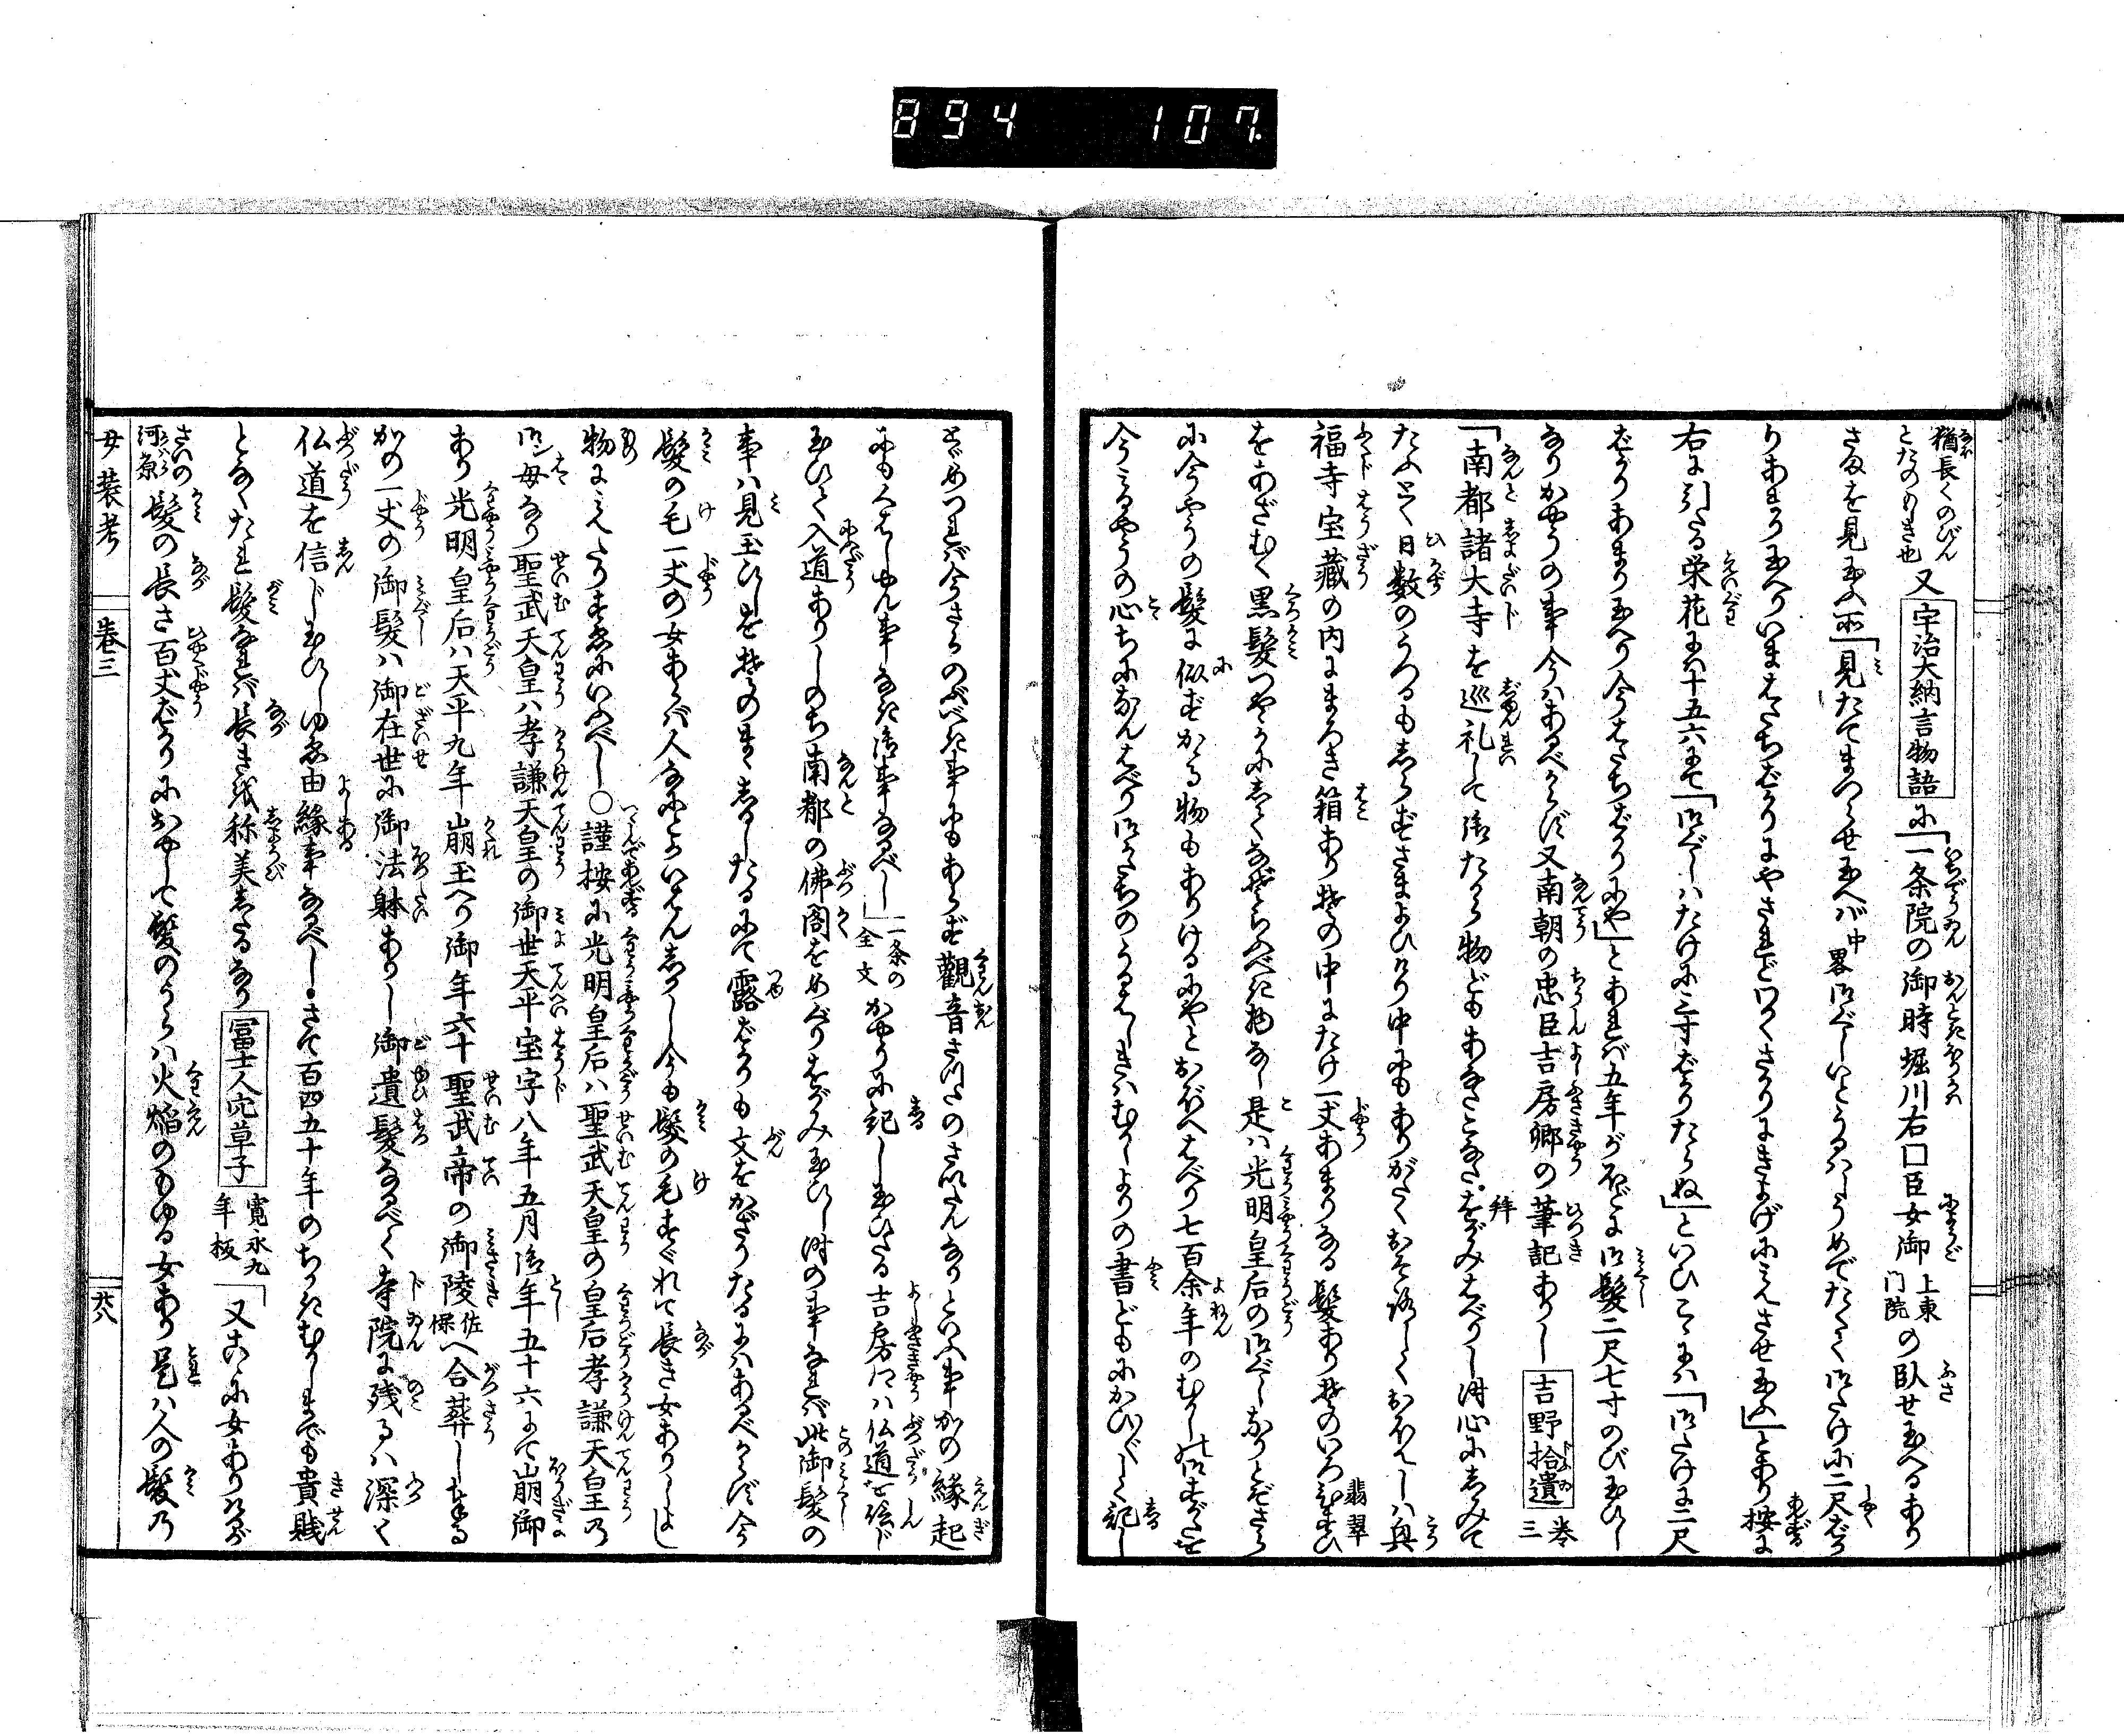 894 107.
猶長くのびん
とたのめき也
又宇治大納言物語に「一条院の御時堀川右口臣女御上東門院の臥せ玉へるあり
さまを見玉ふ所「見たてまつらせ玉へバ中畧御ぐしいとうるハしうめでたくて御たけに二尺ばか
りあまり玉へりいまはたちばかりにやされどわかくさかりにきよげに見えさせ玉ふ」とあり按に
右に引たる栄花にハ十五六にて「御ぐしハたけに二寸ばかりたらぬ」といひこゝにハ「御たけに二尺
ばかりあまり玉へり今はたちばかりにや」とあれバ五年がほどに御髪二尺七寸のび玉ひし
なりかやうの事今ハあるべからず又南朝の忠臣吉房卿の筆記ありし吉野拾遺巻三
「南都諸大寺を巡礼して侍たから物どもあなさこなさ拝をがみはべりし時心にしみて
たふとく日数のうつるもしらずさまよひける中にもありがたくおそろしくおぼえしハ興
福寺宝藏の内にまろき箱あり其の中にたけ一丈あまりなる髪あり其のいろ翡翠
をあざむく黒髪つやゝかにしてなぞらふべき物なし是ハ光明皇后の御ぐしなりとぞさら
に今やうの髪に似ずかゝる物もありけるにやとおぼへはべり七百余年のむかし
今ミるやうの心ちになんはべり御かたちのうるはしきハむかしよりの書どもにかひ〴〵しく記し
とゞめつれバ今さらのぶべき事にもあらず觀音さつたのさいたんなりといふ事かの縁起
にもくはしゆん事なき御事なるべし」一条の全文かやうに記し玉ひたる吉房卿ハ仏道を信じ
玉ひて入道ありしのち南都の佛閣をめぐりをがみ玉ひし時の事なれバ此御髪の
事ハ見玉ひしを其のまゝしるしたるにて露ばかりも文をかざりたるにハあるべからず今
髪の毛一丈の女あらバ人なにとかいはんしかし今も髪の毛すぐれて長き女ありしよし
物にみえたりすゑにいふべし○謹按に光明皇后ハ聖武天皇の皇后孝謙天皇乃
御母なり聖武天皇ハ孝謙天皇の御世天平宝字八年五月御年五十六にて崩御
あり光明皇后ハ天平九年崩玉へり御年六十聖武帝の御陵佐保へ合葬し奉る
かの一丈の御髪ハ御在世に御法躰ありし御遺髪なるべく寺院に残るハ深く
仏道を信じ玉ひしゆゑ由縁事なるべし・さて百四五十年のちかきむかしまでも貴賎
となくたれ髪なれバ長きを称美したるなり冨士人穴草子寛永九年板「又こゝに女ありけるが
さいの河原髪の長さ百丈ばかりにおやして髪のうらハ火焔のもゆる女あり是ハ人の髪乃
女装考 巻三 廿八